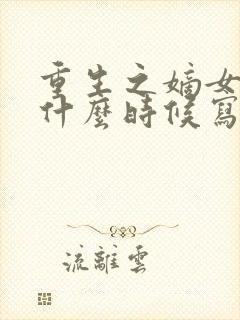 重生之嫡女
什麼時候寫
流離雲